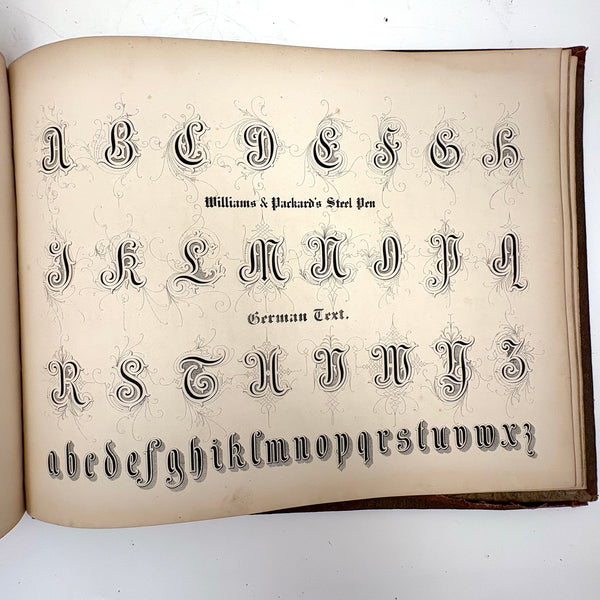 A B C D E F G H
Williams & Packard's Steel Pen
I K L M N O P Q
German Text.
R S T U V W Y Z
a b c d e f g h i k l m n o p q r s t u v w x z